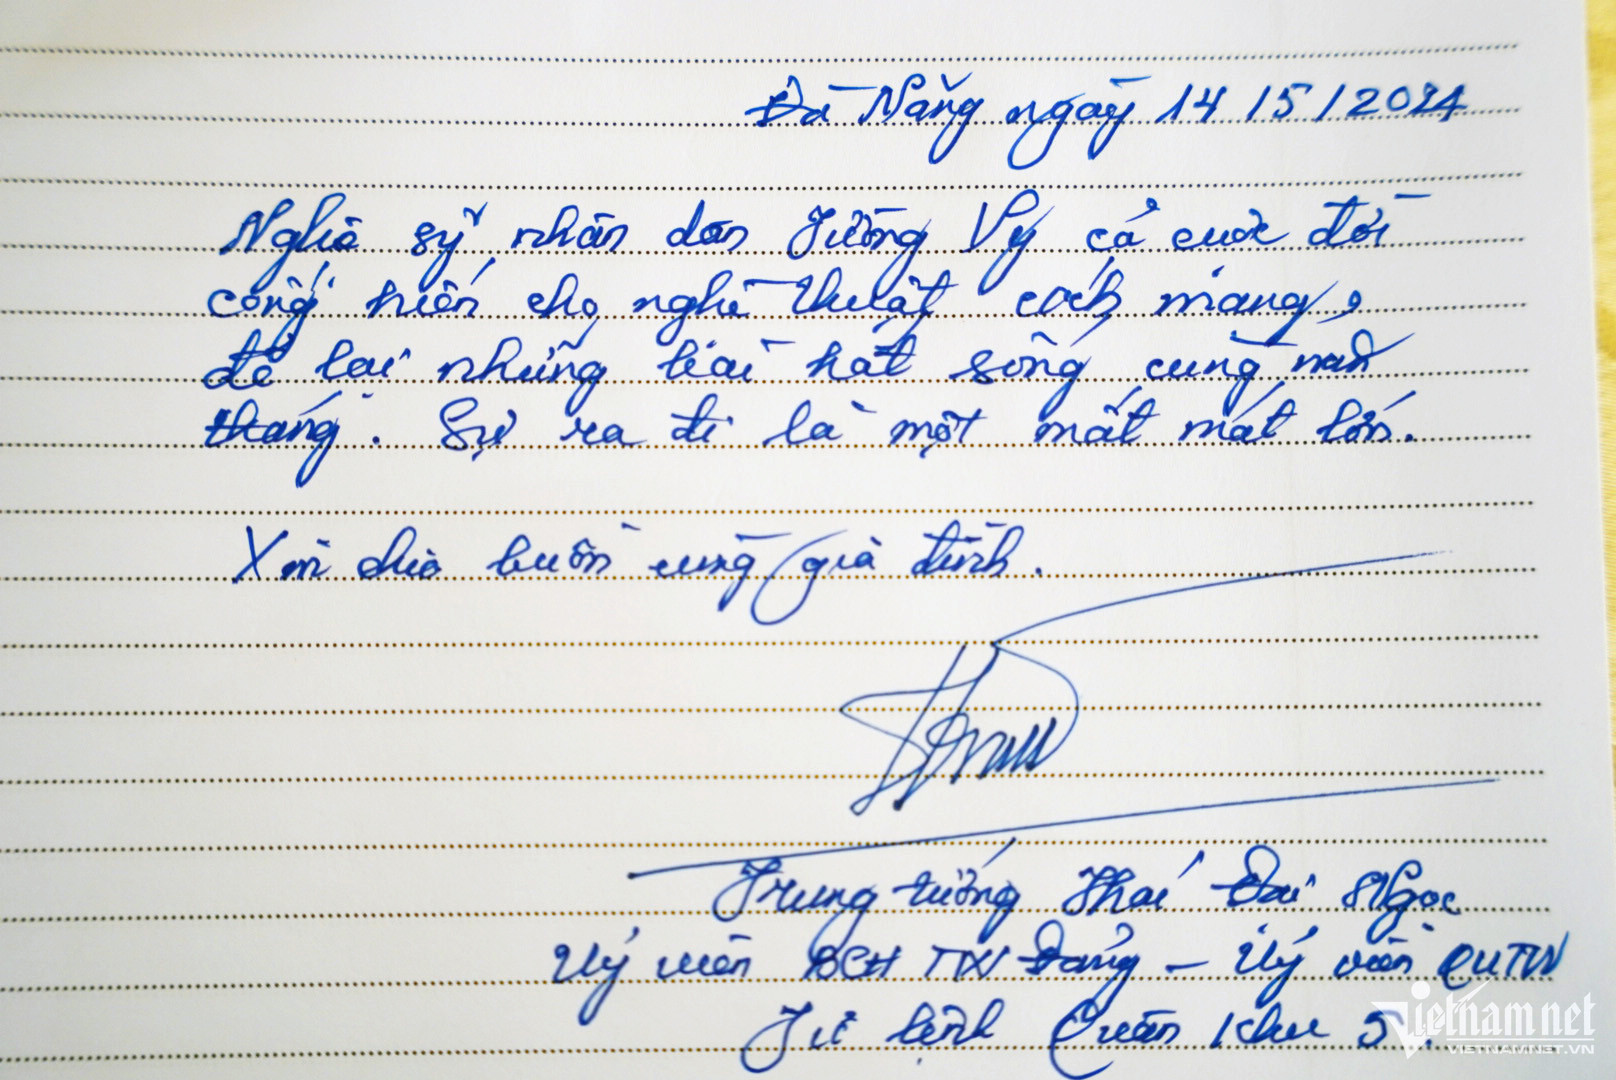 Đà Nẵng ngày 14/5/2024
Nghệ sỹ nhân dân Tường Vy cả cuộc đời
cống hiến cho nghệ thuật cách mạng,
để lại những bài hát sống cùng năm
tháng. Sự ra đi là một mất mát lớn.
Xin chia buồn cùng gia đình.
Trung tướng Thái Đại Ngọc
Uỷ viên BCH TW Đảng - Uỷ viên QUTW
Tư lệnh Quân khu 5.
Vietnamnet
VIETNAMNET.VN